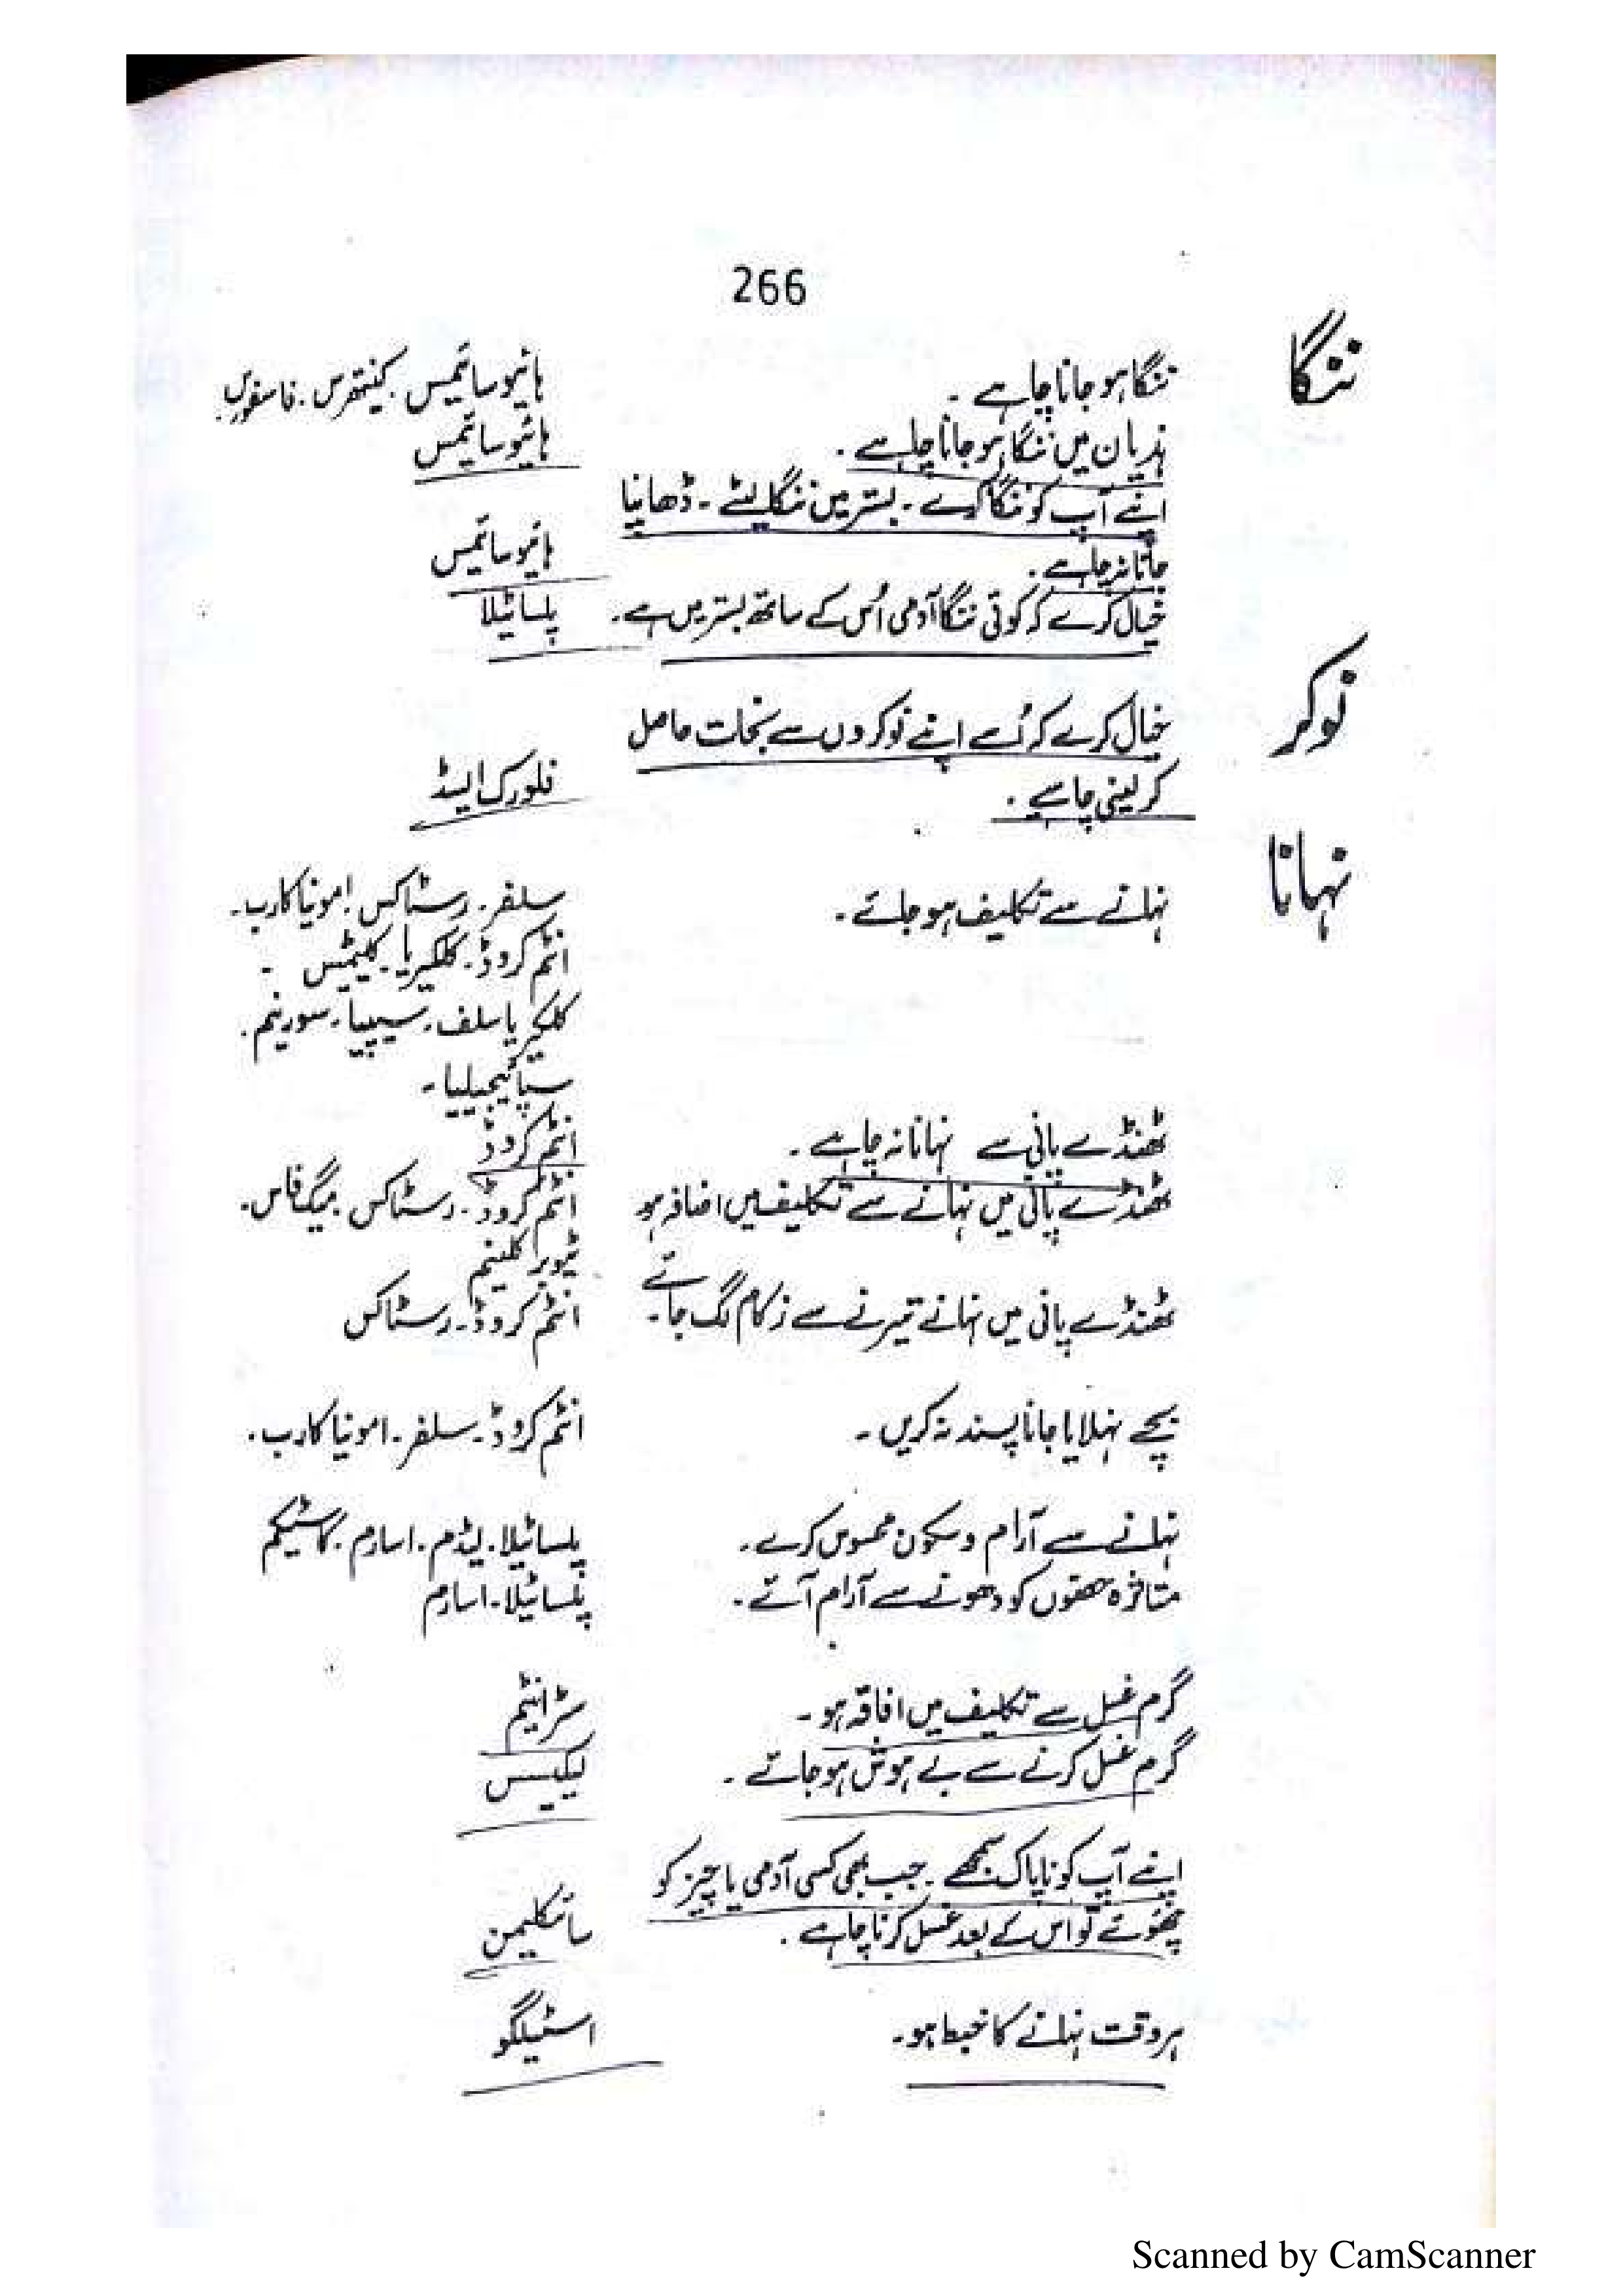 266
ننگا
ننگا ہو جانا چاہے۔ ہائیوسائمس۔ کینتھرس۔ فاسفورس۔
ہذیان میں ننگا ہو جانا چاہے۔ ہائیوسائمس
اپنے آپ کو ننگا کرے۔ بستر میں ننگا لیٹے۔ ڈھانپا
جانا نہ چاہے۔ ہائیوسائمس
خیال کرے کہ کوئی ننگا آدمی اُس کے ساتھ بستر میں ہے۔ پلساٹیلا
نوکر
خیال کرے کہ اُسے اپنے نوکروں سے نجات حاصل
کر لینی چاہیے۔ فلورک ایسڈ
نہانا
نہانے سے تکلیف ہو جائے۔ سلفر۔ رسٹاکس۔ امونیا کارب۔
انٹم کروڈ۔ کلکیریا۔ کلیمٹس۔
کلکیریا سلف۔ سیپیا۔ سورینم۔
سپائیجیلیا۔
ٹھنڈے پانی سے نہانا نہ چاہے۔ انٹم کروڈ
ٹھنڈے پانی میں نہانے سے تکلیف میں اضافہ ہو انٹم کروڈ۔ رسٹاکس۔ میگ فاس۔
ٹیوبرکلینم
ٹھنڈے پانی میں نہانے تیرنے سے زکام لگ جائے۔ انٹم کروڈ۔ رسٹاکس
بچے نہلایا جانا پسند نہ کریں۔ انٹم کروڈ۔ سلفر۔ امونیا کارب۔
نہانے سے آرام و سکون محسوس کرے۔ پلساٹیلا۔ لیڈم۔ اسارم۔ کاسٹیکم
متاثرہ حصوں کو دھونے سے آرام آئے۔ پلساٹیلا۔ اسارم
گرم غسل سے تکلیف میں افاقہ ہو۔ سٹرانٹیم
گرم غسل کرنے سے بے ہوش ہو جائے۔ لیکیسس
اپنے آپ کو ناپاک سمجھے۔ جب بھی کسی آدمی یا چیز کو
چھوئے تو اس کے بعد غسل کرنا چاہے۔ سائکلیمن
ہر وقت نہانے کا خبط ہو۔ اسٹیلگو
Scanned by CamScanner